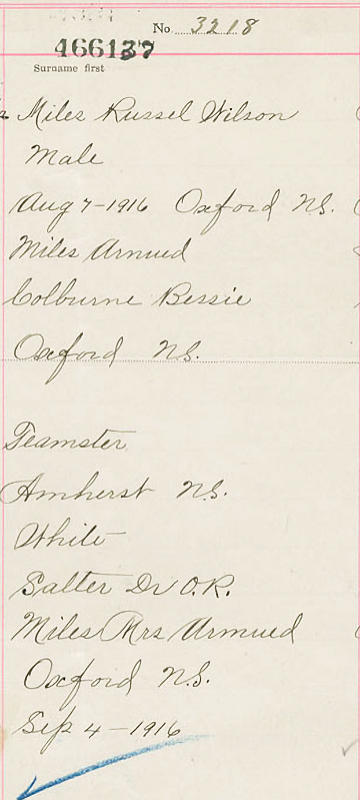 No 3218
466137
Surname first
Miles Russel Wilson
Male
Aug 7-1916 Oxford N.S.
Miles Armued
Colburne Bessie
Oxford N.S.
Teamster
Amherst N.S.
White
Salter Dr O.R.
Miles Mrs Armued
Oxford N.S.
Sep 4-1916